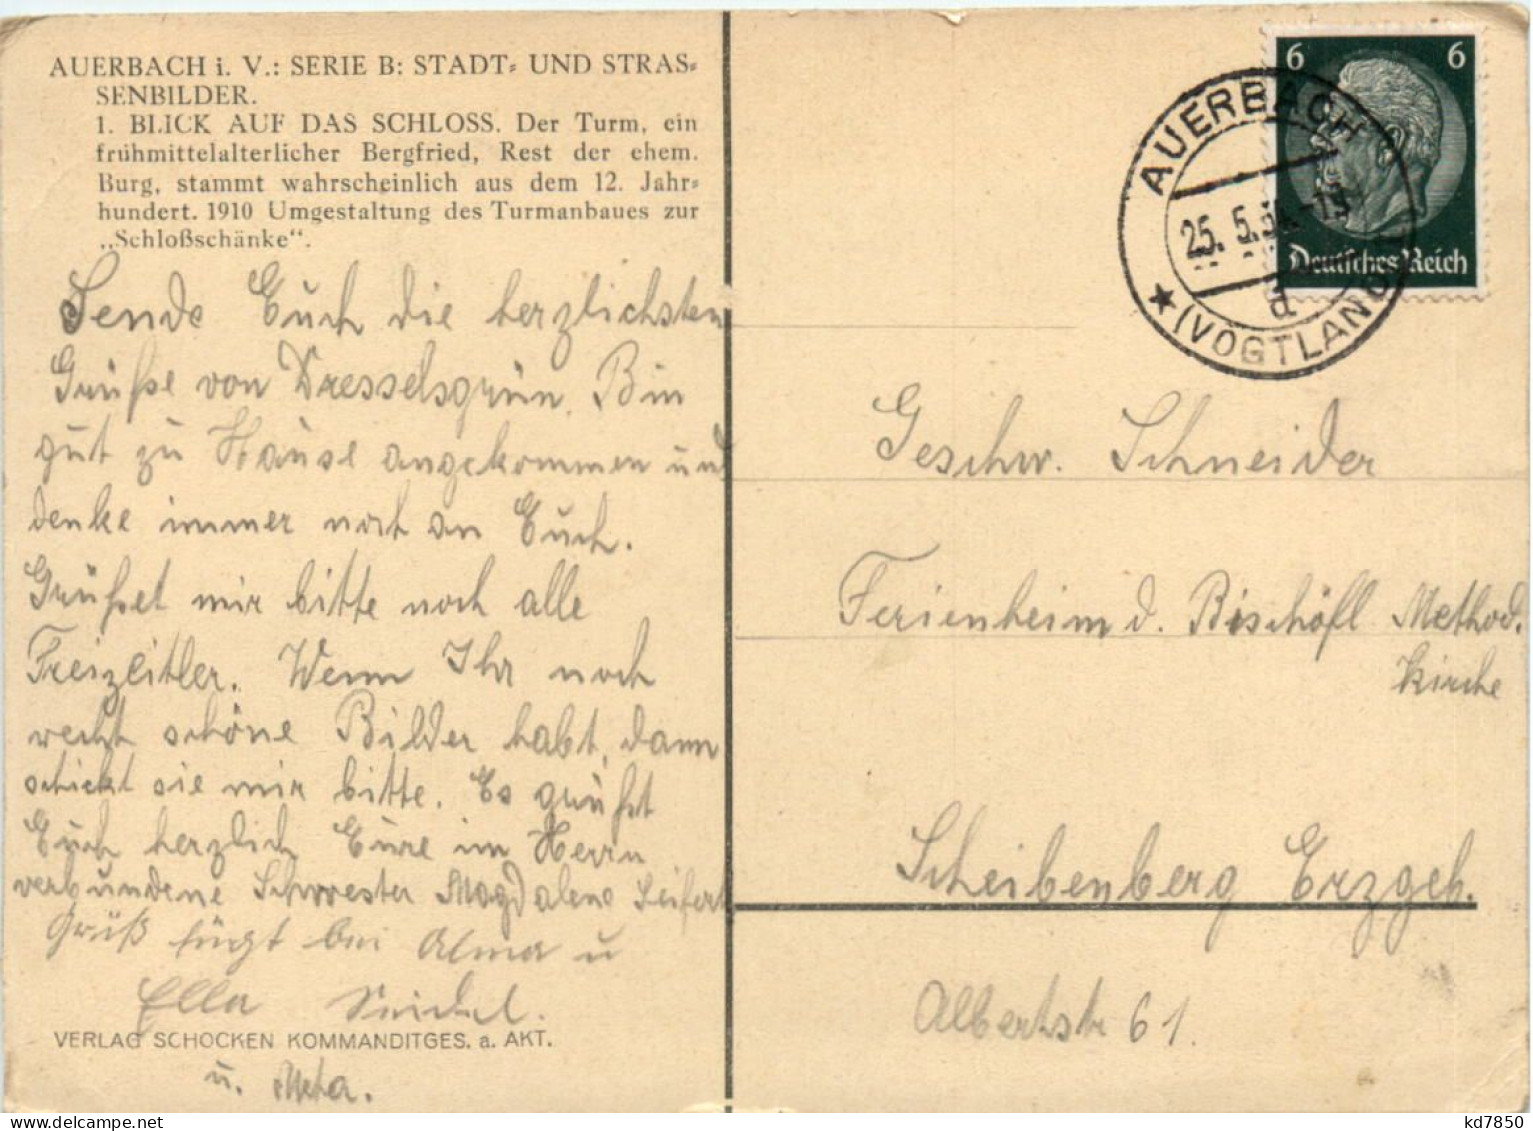 AUERBACH i. V.: SERIE B: STADT- UND STRAS-
SENBILDER.
1. BLICK AUF DAS SCHLOSS. Der Turm, ein
frühmittelalterlicher Bergfried, Rest der ehem.
Burg, stammt wahrscheinlich aus dem 12. Jahr-
hundert. 1910 Umgestaltung des Turmanbaues zur
„Schloßschänke“.
Sende Euch die herzlichsten
Grüße von Dresselsgrün. Bin
gut zu Hause angekommen und
denke immer noch an Euch.
Grüßet mir bitte noch alle
Freizeitler. Wenn Ihr noch
recht schöne Bilder habt, dann
schickt sie mir bitte. Es grüßt
Euch herzlich Eure im Herrn
verbundene Schwester Magdalene Seifert
Gruß fügt bei Alma u
Ella Seidel.
VERLAG SCHOCKEN KOMMANDITGES. a. AKT.
u. Meta.
6 6
Deutsches Reich
AUERBACH
25. 5. -19
d
★ (VOGTLAND)
Geschw. Schneider
Ferienheim d. Bischöfl Method.
Kirche
Scheibenberg Erzgeb.
Albertstr 61.
kd7850